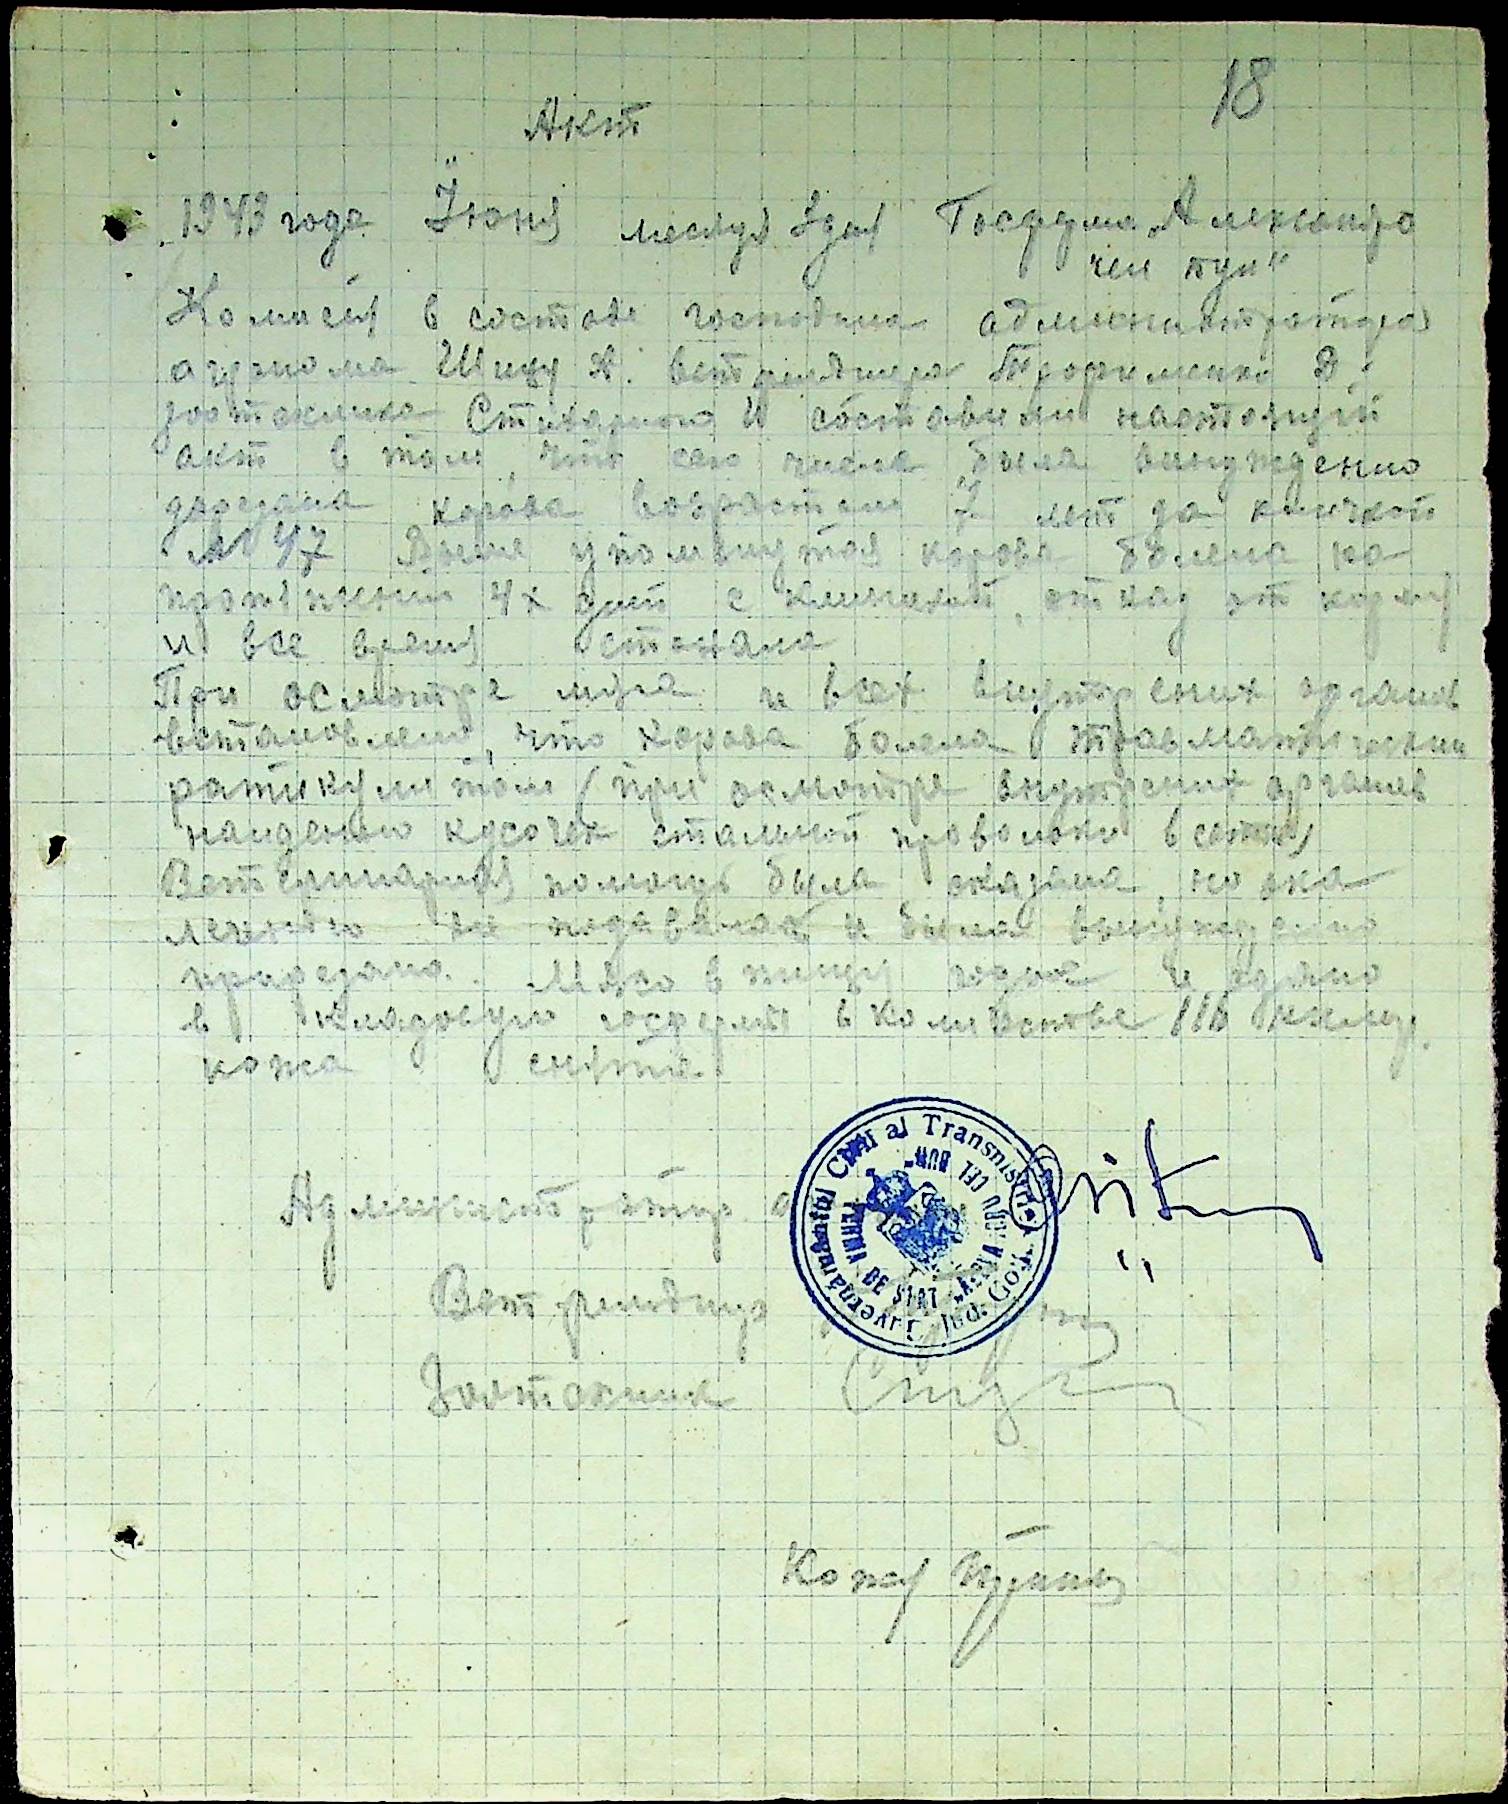 18
Акт
1943 года Июня месяца 3 дня Госферма „Александро
чел пун"
Комисия в составе господина администратора
агронома Шицу А. ветфельдшера Трофименко В
зоотехника С и составили настоящий
акт в том, что сего числа была вынужденно
дорезана корова возрастом 7 лет за кличкой
№ 47 Выше упомянутая корова болела на
протяжении 4х дней с клиникой, отказ от корму
и все время стонала
При осмотре мяса и всех внутрених органов
встановлено, что корова болела травматическим
ратикулитом (при осмотре внутрених органов
найденно кусочек стальной проволоки в сетке)
Ветеринарная помощь была оказана, но она
лечению не подавалась и была вынужденно
прирезана. Мясо в пищу годное и сдано
в кладовую госфермы в количестве 116 килогр.
кожа снята
Администратор а
Ветфельдшер
Зоотехник
Guvernământul Civil al Transnistriei Jud. Golta
FERMA DE STAT „ALEXANDRU CEL BUN"
Кожу принял